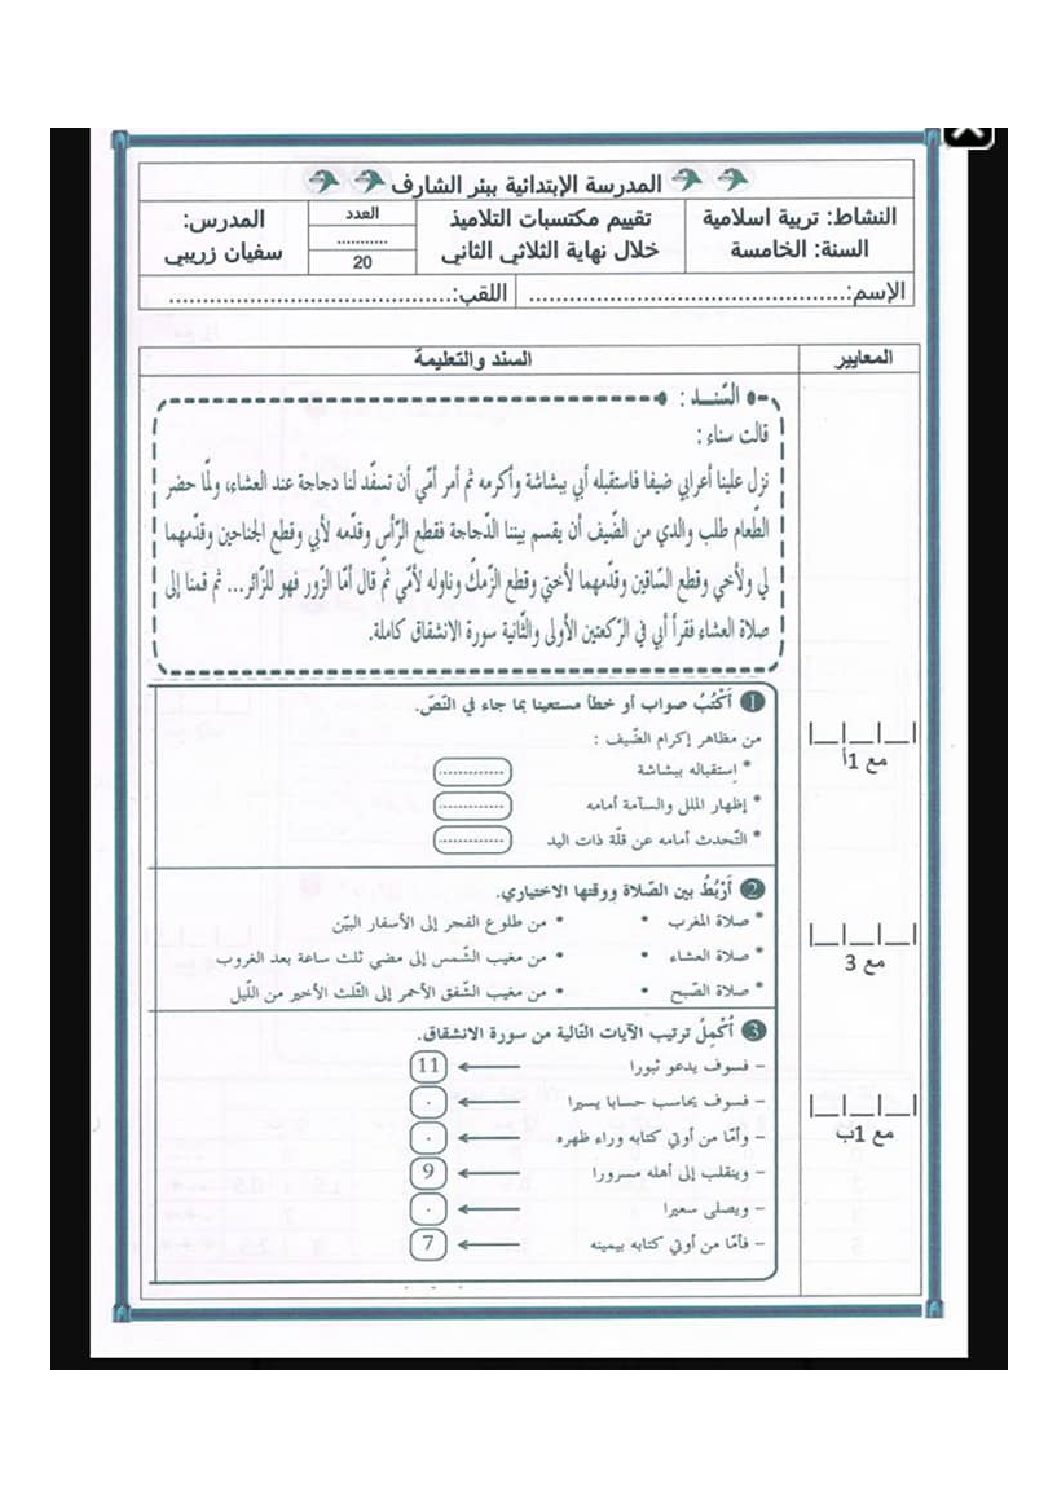 المدرسة الإبتدائية ببئر الشارف
النشاط: تربية اسلامية
السنة: الخامسة
تقييم مكتسبات التلاميذ
خلال نهاية الثلاثي الثاني
العدد
...........
20
المدرس:
سفيان زريبي
الإسم:...............................................
اللقب:..........................................
المعايير
السند والتعليمة
السّنــد :
قالت سناء :
نزل علينا أعرابي ضيفا فاستقبله أبي ببشاشة وأكرمه ثم أمر أمّي أن تسفّد لنا دجاجة عند العشاء، ولمّا حضر
الطّعام طلب والدي من الضّيف أن يقسم بيننا الدّجاجة فقطع الرّأس وقدّمه لأبي وقطع الجناحين وقدّمهما
لي ولأخي وقطع السّاقين وقدّمهما لأختي وقطع الزّمكّ وناوله لأمّي ثمّ قال أمّا الزّور فهو للزّائر... ثم قمنا إلى
صلاة العشاء فقرأ أبي في الرّكعتين الأولى والثّانية سورة الانشقاق كاملة.
1 أَكْتُبُ صواب أو خطأ مستعينا بما جاء في النّصّ.
من مظاهر إكرام الضّيف :
* إستقباله ببشاشة .............
* إظهار الملل والسآمة أمامه .............
* التّحدث أمامه عن قلّة ذات اليد .............
مع 1أ
2 أَرْبُطُ بين الصّلاة ووقتها الاختياري.
* صلاة المغرب • • من طلوع الفجر إلى الأسفار البيّن
* صلاة العشاء • • من مغيب الشّمس إلى مضي ثلث ساعة بعد الغروب
* صلاة الصّبح • • من مغيب الشّفق الأحمر إلى الثّلث الأخير من اللّيل
مع 3
3 أُكْمِلُ ترتيب الآيات التّالية من سورة الانشقاق.
– فسوف يدعو ثبورا ← 11
– فسوف يحاسب حسابا يسيرا ← .
– وأمّا من أوتي كتابه وراء ظهره ← .
– وينقلب إلى أهله مسرورا ← 9
– ويصلى سعيرا ← .
– فأمّا من أوتي كتابه بيمينه ← 7
مع 1ب